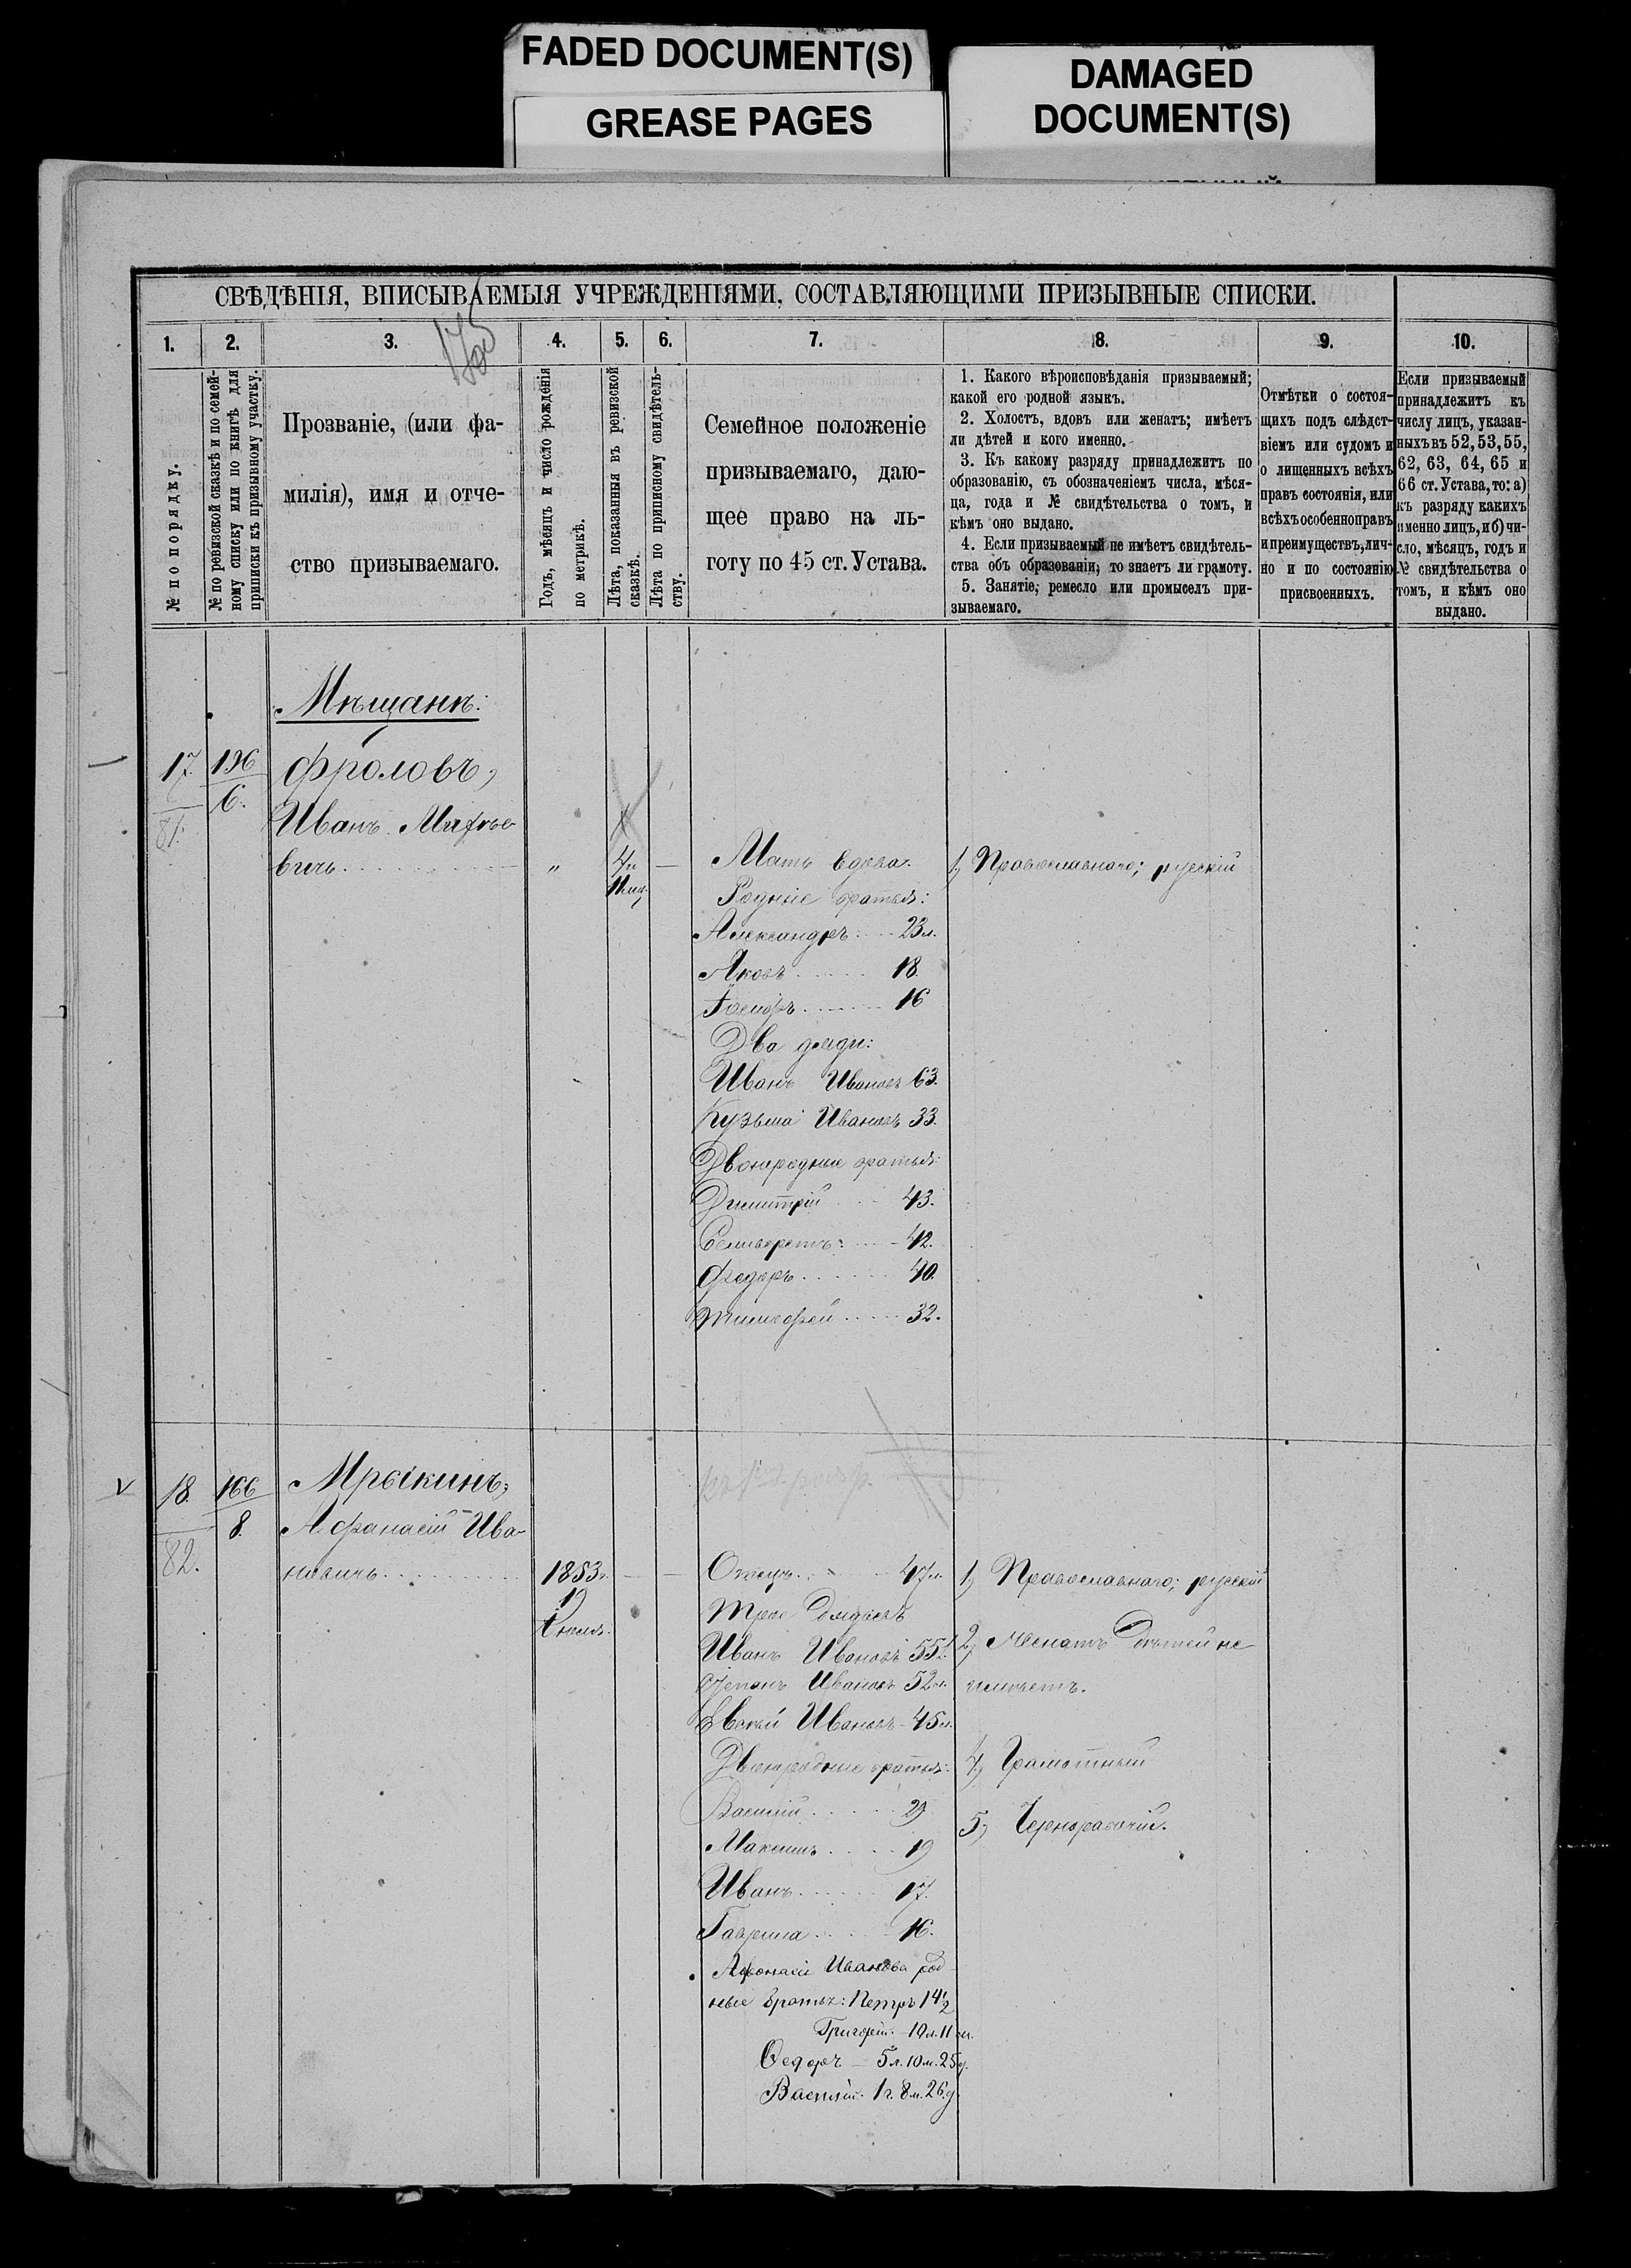 FADED DOCUMENT(S)
GREASE PAGES
DAMAGED
DOCUMENT(S)
СВѢДѢНІЯ, ВПИСЫВАЕМЫЯ УЧРЕЖДЕНІЯМИ, СОСТАВЛЯЮЩИМИ ПРИЗЫВНЫЕ СПИСКИ.
1.
2.
3.
4.
5.
6.
7.
8.
9.
10.
№ по порядку.
№ по ревизской сказкѣ и по семей-
ному списку или по книгѣ для
приписки къ призывному участку.
Прозваніе, (или фа-
милія), имя и отче-
ство призываемаго.
Годъ, мѣсяцъ и число рожденія
по метрикѣ.
Лѣта, показанныя въ ревизской
сказкѣ.
Лѣта по приписному свидѣтель-
ству.
Семейное положеніе
призываемаго, даю-
щее право на ль-
готу по 45 ст. Устава.
1. Какого вѣроисповѣданія призываемый;
какой его родной языкъ.
2. Холостъ, вдовъ или женатъ; имѣетъ
ли дѣтей и кого именно.
3. Къ какому разряду принадлежитъ по
образованію, съ обозначеніемъ числа, мѣся-
ца, года и № свидѣтельства о томъ, и
кѣмъ оно выдано.
4. Если призываемый не имѣетъ свидѣтель-
ства объ образованіи, то знаетъ ли грамоту.
5. Занятіе, ремесло или промыселъ при-
зываемаго.
Отмѣтки о состоя-
щихъ подъ слѣдст-
віемъ или судомъ и
о лишенныхъ всѣхъ
правъ состоянія, или
всѣхъ особенно правъ
и преимуществъ, лич-
но и по состоянію
присвоенныхъ.
Если призываемый
принадлежитъ къ
числу лицъ, указан-
ныхъ въ 52, 53, 55,
62, 63, 64, 65 и
66 ст. Устава, то: а)
къ разряду какихъ
именно лицъ, и б) чи-
сло, мѣсяцъ, годъ и
№ свидѣтельства о
томъ, и кѣмъ оно
выдано.
Мѣщанѣ:
17. 196 Фроловъ,
6.
81. Иванъ Матвѣе-
вичъ " 4 — Мать вдова. 1, Православнаго; русскій
11 мѣс. Родные братья:
Александръ 23 л.
Яковъ 18
16
Два дяди:
Иванъ Ивановъ 63.
Кузьма Ивановъ 33.
Двоюродные братья:
Дмитрій 43.
Селиверстъ 42.
Федоръ 40.
Тимофей 32.
18. 166 Мрыкинъ,
8. Афанасій Ива-
82. новичъ 1853 г. — — Отецъ 47 л. 1, Православнаго; русскій
19
Трое дядьевъ
Иванъ Ивановъ 55 л. 2, Женатъ дѣтей не
Степанъ Ивановъ 52 л. имѣетъ.
Евсѣй Ивановъ 45 л.
Двоюродные братья: 4, Грамотный
Василій 29
5, Чернорабочій.
Максимъ 19
Иванъ 17.
Гаврила 16.
Афонасія Иванова род-
ные братья: Петръ 14 1/2
Григорій 10 л. 11 м.
Ѳедоръ — 5 л. 10 м. 25 д.
Василій 1 г. 8 м. 26 д.